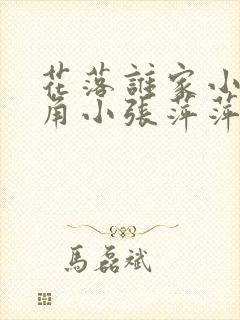 花落誰家小
角小張萍萍
馬磊斌